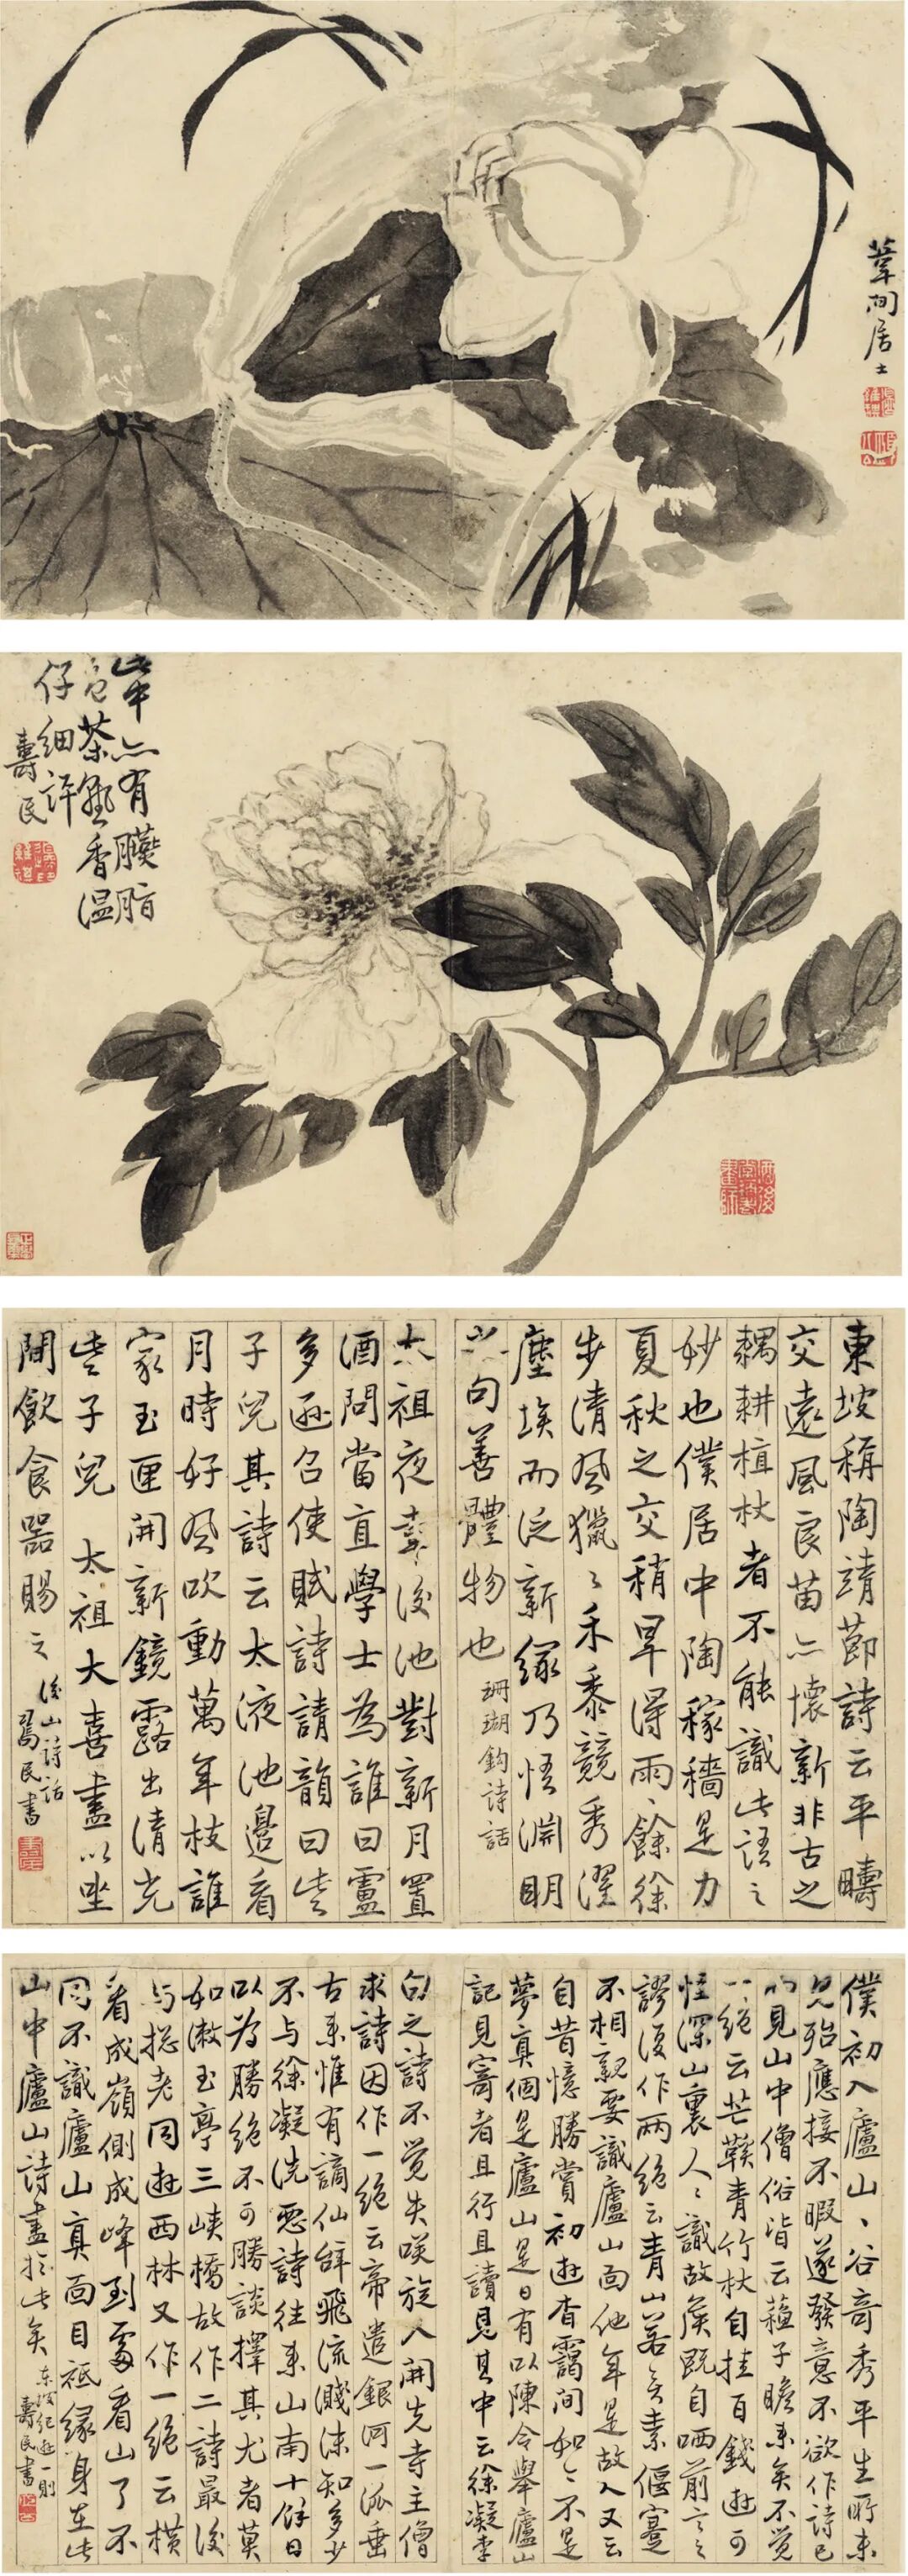 葦間居士
筆亦有臙脂
色茶熟香温
仔細評
壽民
東坡稱陶靖節詩云平疇
交遠風良苗亦懷新非古之
耦耕植杖者不能識此語之
妙也僕居中陶稼穡是力
夏秋之交稍旱得雨雨餘徐
步清風獵獵禾黍競秀濯
塵埃而泛新綠乃悟淵明
之句善體物也 珊瑚鈎詩話
太祖夜幸後池對新月置
酒問當直學士為誰曰盧
多遜召使賦詩請韻曰些
子兒其詩云太液池邊看
月時好風吹動萬年枝誰
家玉匣開新鏡露出清光
些子兒 太祖大喜盡以坐
間飲食器賜之 後山詩話
壽民書
僕初入廬山山谷奇秀平生所未
見殆應接不暇遂發意不欲作詩已
而見山中僧俗皆云蘇子瞻來矣不覺
作一絕云芒鞵青竹杖自挂百錢遊可
怪深山裏人人識故侯既自哂前言之
謬復作兩絕云青山若無素偃蹇
不相親要識廬山面他年是故人又云
自昔憶勝賞初遊杳靄間如今不是
夢真個是廬山是日有以陳令舉廬山
記見寄者且行且讀見其中云徐凝李
白之詩不覺失笑旋入開先寺主僧
求詩因作一絕云帝遣銀河一派垂
古來惟有謫仙辭飛流濺沫知多少
不與徐凝洗惡詩往來山南十餘日
以為勝絕不可勝談擇其尤者莫
如漱玉亭三峽橋故作二詩最後
與摠老同遊西林又作一絕云橫
看成嶺側成峰到處看山了不
同不識廬山真面目祗緣身在此
山中廬山詩盡於此矣 東坡紀遊一則
壽民書